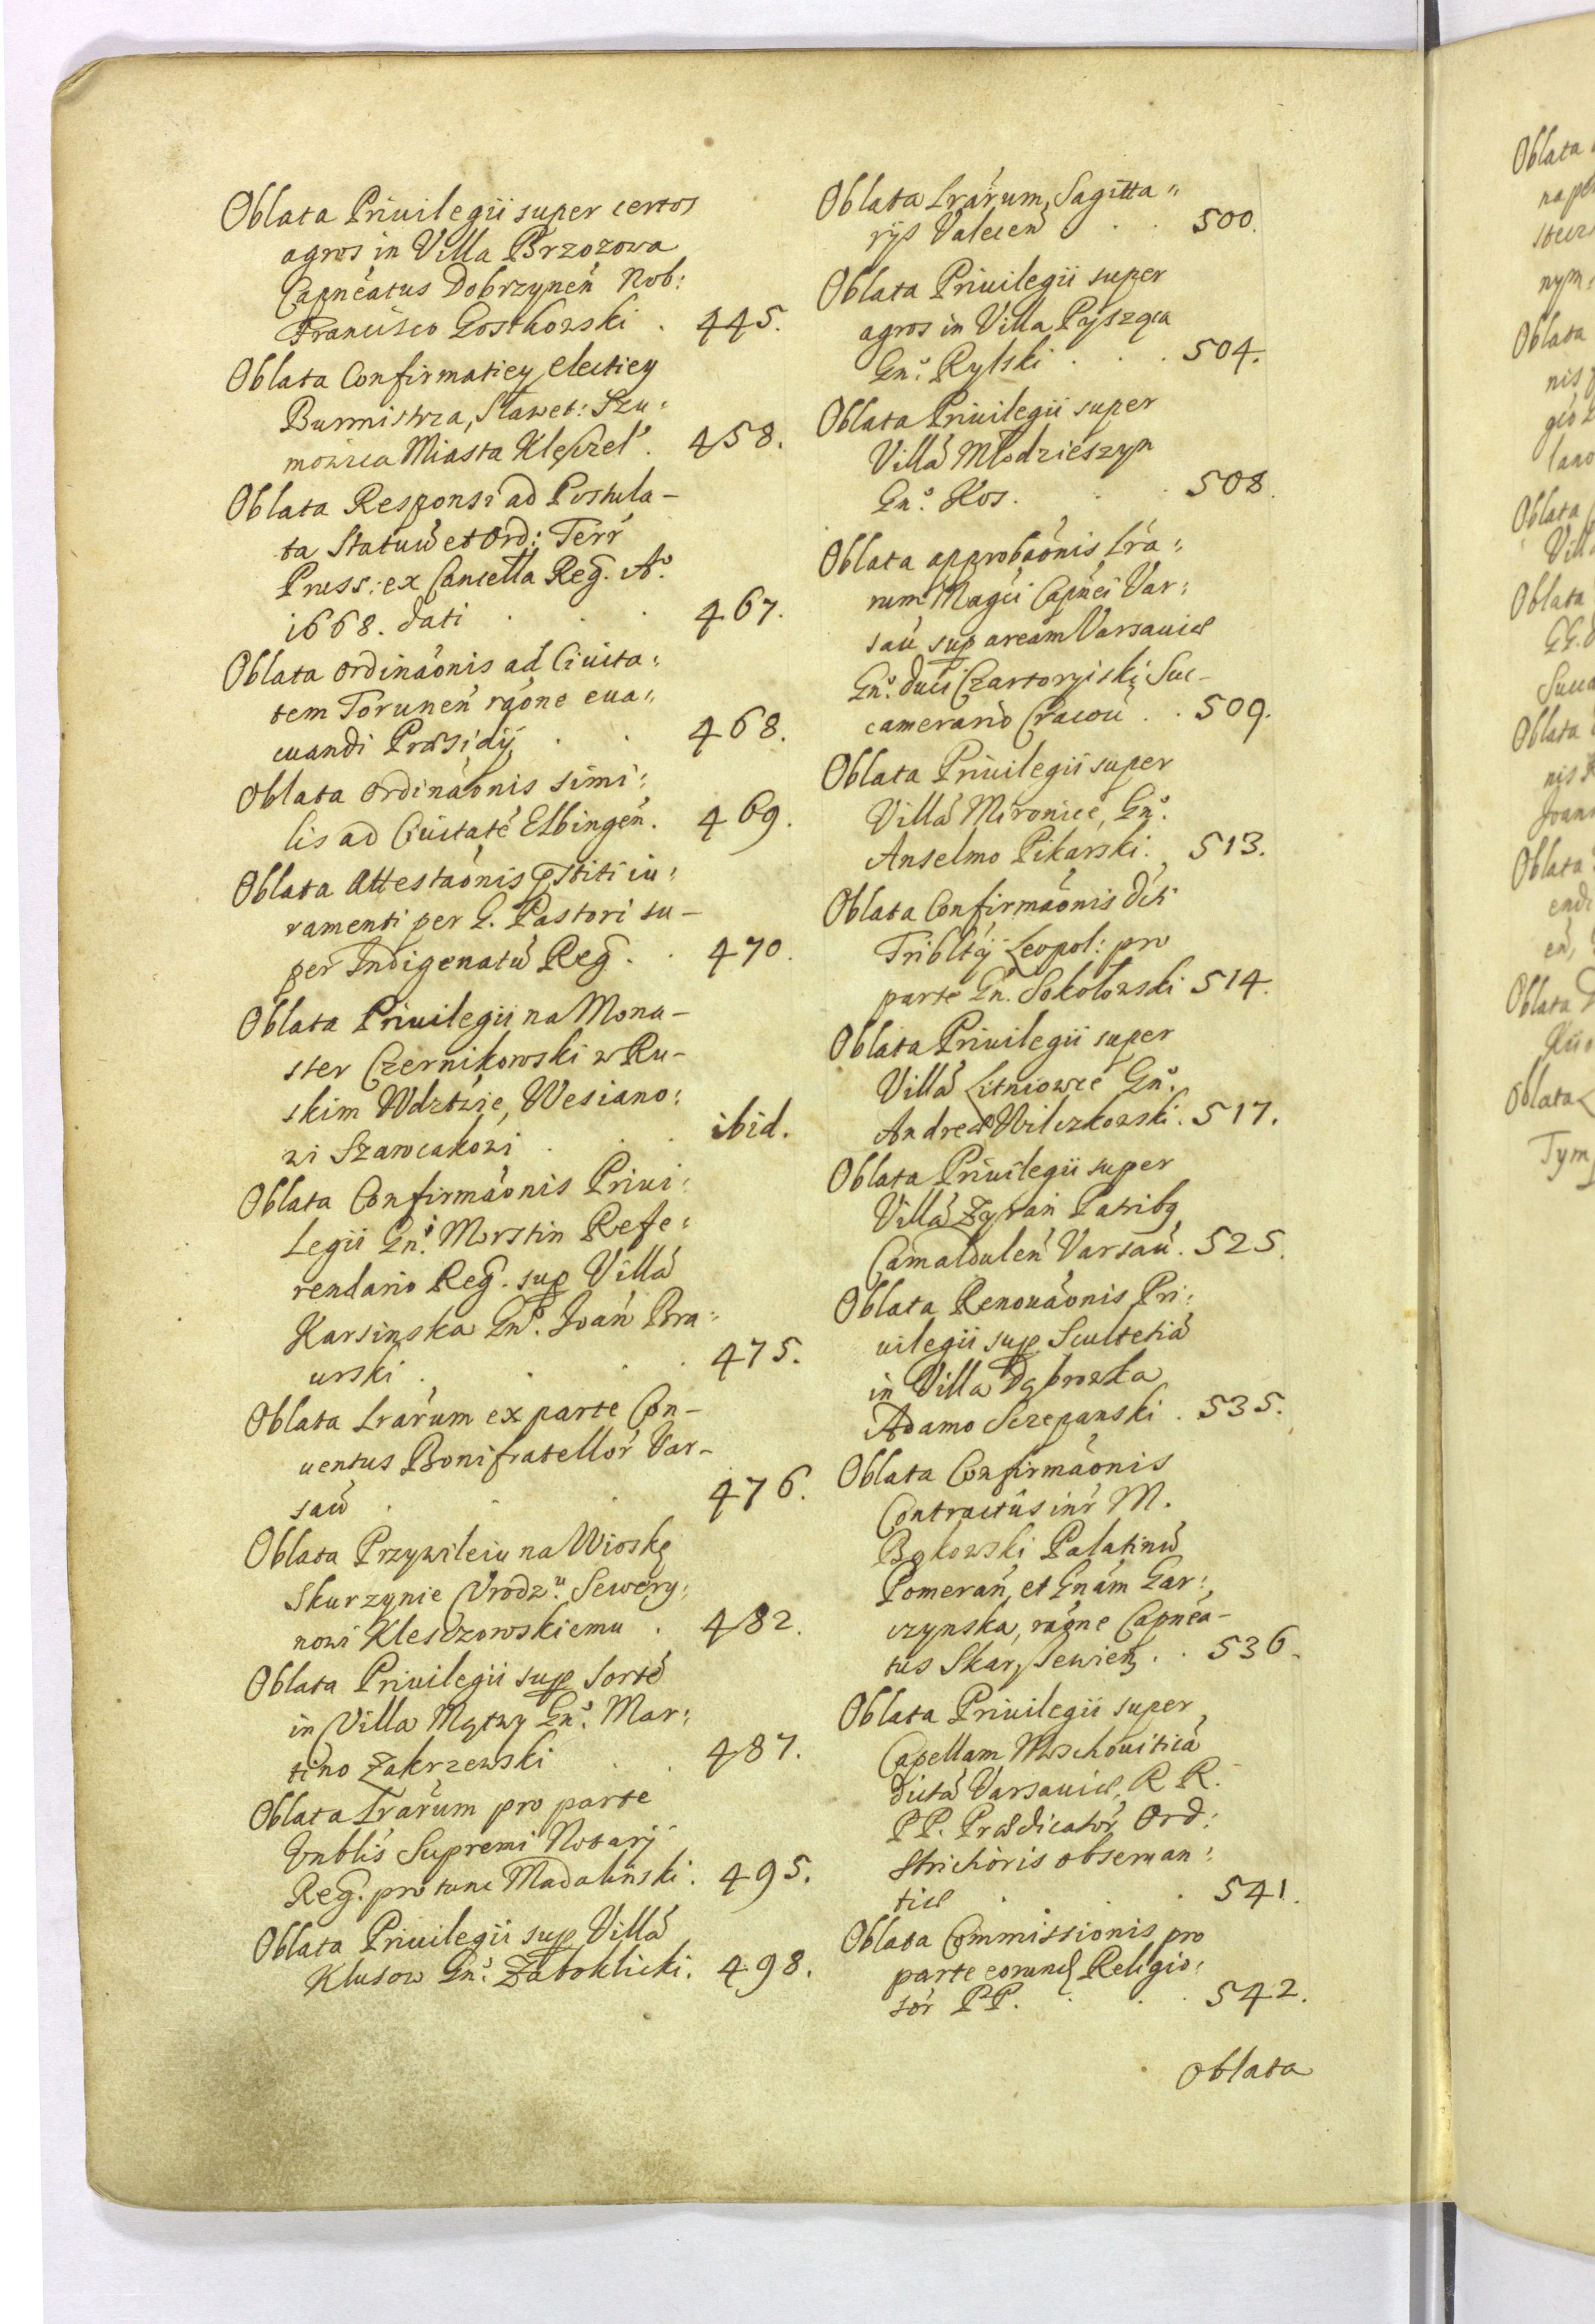 Oblata Priuilegii super certos
agros in Villa Brzozowa
Capneatus Dobrzyneń Nob:
Francisco Gostkowski . 445.
Oblata Confirmatiey electiey
Burmistrza, Sławet: Szu:
mowica Miasta Klęczel . 458.
Oblata Responsi ad Postula-
ta Statuu et Ord: Terr
Pruss: ex Cancella Reg. Aº.
1668. dati . . 467.
Oblata Ordinaonis ad Ciuita:
tem Toruneń raone eua:
cuandi Præsidij . . 468.
Oblata Ordinaonis simi:
lis ad Ciuitate Elbingeń. 469.
Oblata Attestaonis pstiti iu:
ramenti per G. Pastori su-
per Indigenatu Reg . . 470.
Oblata Priuilegii na Mona-
ster Czernikowski w Ru-
skim Wdztwie, Wesiano:
wi Szawcakowi . . ibid.
Oblata Confirmaonis Priui:
Legii Gnº. Morstin Refe:
rendario Reg. sup Villa
Karsinska Gnº. Joan Bra:
urski . . . 475.
Oblata Lrarum ex parte Con-
uentus Bonifratellor Var-
sau . . . 476.
Oblata Przywileiu na Wioskę
Skurzynie Vrodzᵘ. Sewery:
nowi Kleszczowskiemu . 482.
Oblata Priuilegii sup Sorte
in Villa Mątwy Gnº. Mar:
tino Zakrzewski . . 487.
Oblata Lrarum pro parte
Gnblis Supremi Notarij
Reg. pro tunc Madalinski . 495.
Oblata Priuilegii sup Villa
Klusow Gnº. Zaboklicki. 498.
Oblata Lrarum, Sagitta"
rijs Valecen . . 500.
Oblata Priuilegii super
agros in Villa Pysząca
Gnº. Rylski . . . 504.
Oblata Priuilegii super
Villa Młodzieszyn
Gnº. Kos . . . 508.
Oblata approbaonis Lra:
rum Magci Capnei Var:
sau sup aream Varsauiæ
Gnº. Duci Czartoryiski Suc-
camerario Cracou . . 509.
Oblata Priuilegii super
Villa Mironice, Gnº.
Anselmo Pikarski . 513.
Oblata Confirmaonis Dcti
Tribltij Leopol: pro
parte Gn. Sokołowski 514.
Oblata Priuilegii super
Villa Litniowce Gnº.
Andreæ Wilczkowski. 517.
Oblata Priuilegii super
Villa Zyrań Patribq
Camaldulen Varsau . 525.
Oblata Renouaonis Pri:
uilegii sup Scultetia
in Villa Dąbrowka
Adamo Sczepanski . 535.
Oblata Confirmaonis
Contractus inr M.
Bąkowski Palatinu
Pomeran, et Gnam Gar:
czynska, raone Capnea-
tus Skarszewien . . 536.
Oblata Priuilegii super
Capellam Moschouitica
dicta Varsauiæ, R R.
PP. Prædicator Ord:
Strichoris obseruan:
tiæ . . . 541.
Oblata Commissionis pro
parte eorund Religio:
sor PP. . . . 542.
Oblata